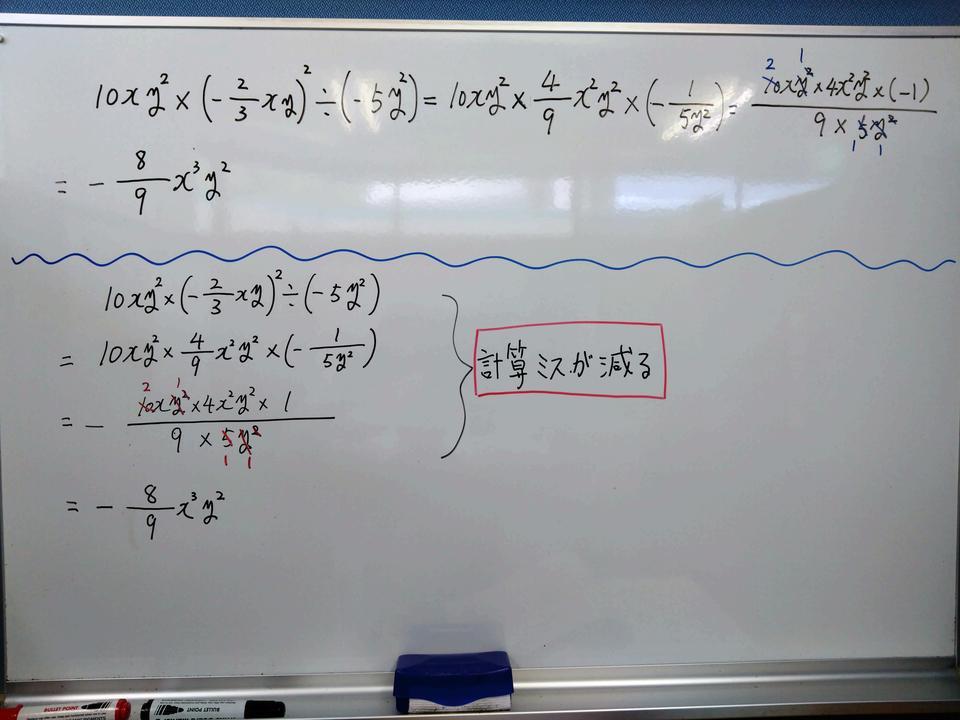 10xy² × (-2/3 xy)² ÷ (-5y²) = 10xy² × 4/9 x²y² × (-1/5y²) = 10xy² × 4x²y² × (-1) / 9 × 5y² 2 1 1 1
= - 8/9 x³y²
10xy² × (-2/3 xy)² ÷ (-5y²)
= 10xy² × 4/9 x²y² × (-1/5y²)
= - 10xy² × 4x²y² × 1 / 9 × 5y² 2 1 1 1
= - 8/9 x³y²
計算ミスが減る
BULLET POINT
BULLET POINT